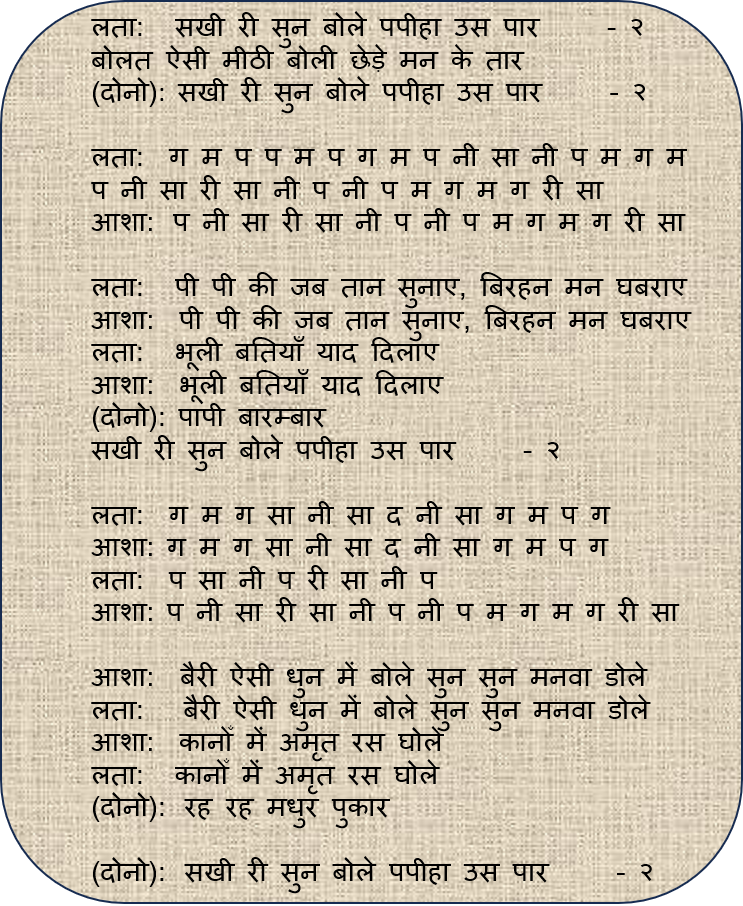 लता: सखी री सुन बोले पपीहा उस पार - २
बोलत ऐसी मीठी बोली छेड़े मन के तार
(दोनो): सखी री सुन बोले पपीहा उस पार - २
लता: ग म प प म प ग म प नी सा नी प म ग म
प नी सा री सा नी प नी प म ग म ग री सा
आशा: प नी सा री सा नी प नी प म ग म ग री सा
लता: पी पी की जब तान सुनाए, बिरहन मन घबराए
आशा: पी पी की जब तान सुनाए, बिरहन मन घबराए
लता: भूली बतियाँ याद दिलाए
आशा: भूली बतियाँ याद दिलाए
(दोनो): पापी बारम्बार
सखी री सुन बोले पपीहा उस पार - २
लता: ग म ग सा नी सा द नी सा ग म प ग
आशा: ग म ग सा नी सा द नी सा ग म प ग
लता: प सा नी प री सा नी प
आशा: प नी सा री सा नी प नी प म ग म ग री सा
आशा: बैरी ऐसी धुन में बोले सुन सुन मनवा डोले
लता: बैरी ऐसी धुन में बोले सुन सुन मनवा डोले
आशा: कानोँ में अमृत रस घोले
लता: कानोँ में अमृत रस घोले
(दोनो): रह रह मधुर पुकार
(दोनो): सखी री सुन बोले पपीहा उस पार - २